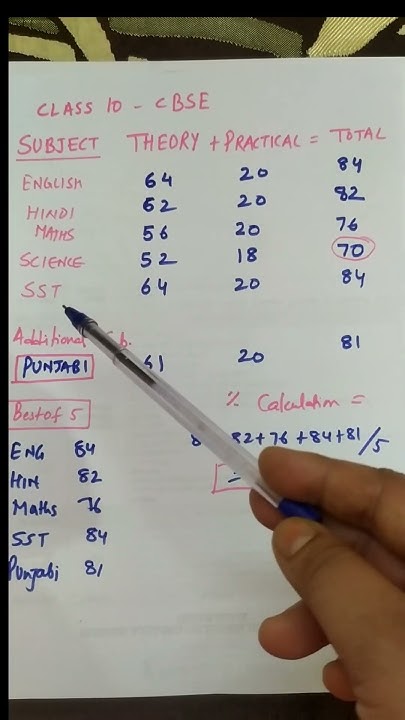 CLASS 10 - CBSE
SUBJECT THEORY + PRACTICAL = TOTAL
ENGLISH 64 20 84
HINDI 62 20 82
MATHS 56 20 76
SCIENCE 52 18 70
SST 64 20 84
Additional
PUNJABI 61 20 81
Best of 5 % Calculation =
ENG 84 82+76+84+81/5
HIN 82 =
Maths 76
SST 84
Punjabi 81